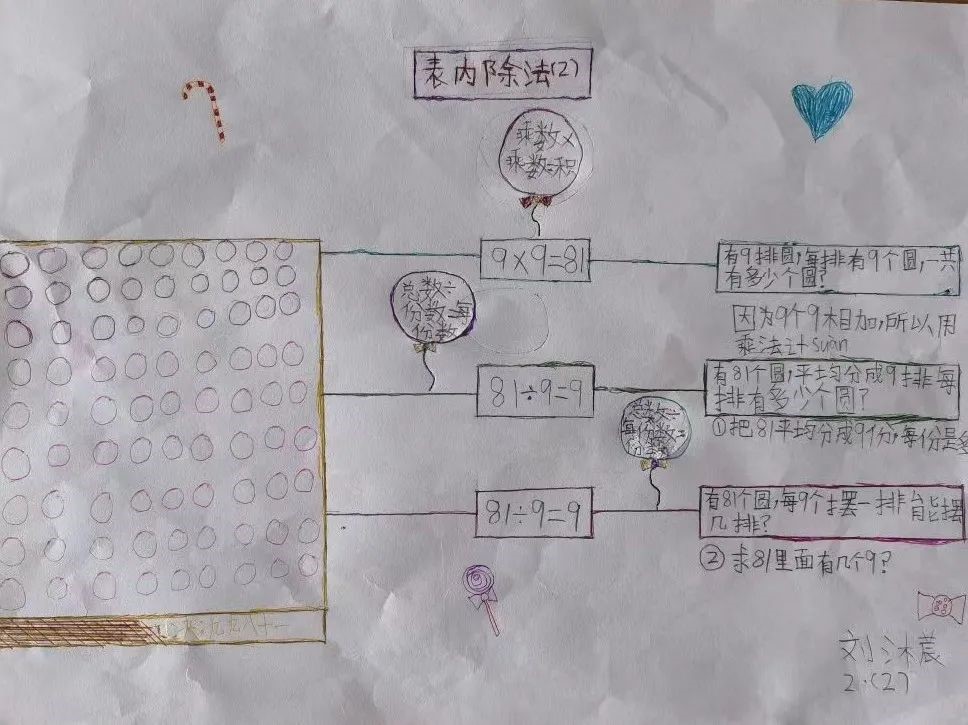 表内除法(2)
乘数×
乘数=积
9×9=81
有9排圆,每排有9个圆,一共
有多少个圆?
因为9个9相加,所以用
乘法计suàn
总数÷
份数=每
份数
81÷9=9
有81个圆,平均分成9排每
排有多少个圆?
①把81平均分成9份,每份是多
总数÷
每份数=
份数
81÷9=9
有81个圆,每9个摆一排能摆
几排?
②求81里面有几个9?
九九八十一
刘沐晨
2.(2)